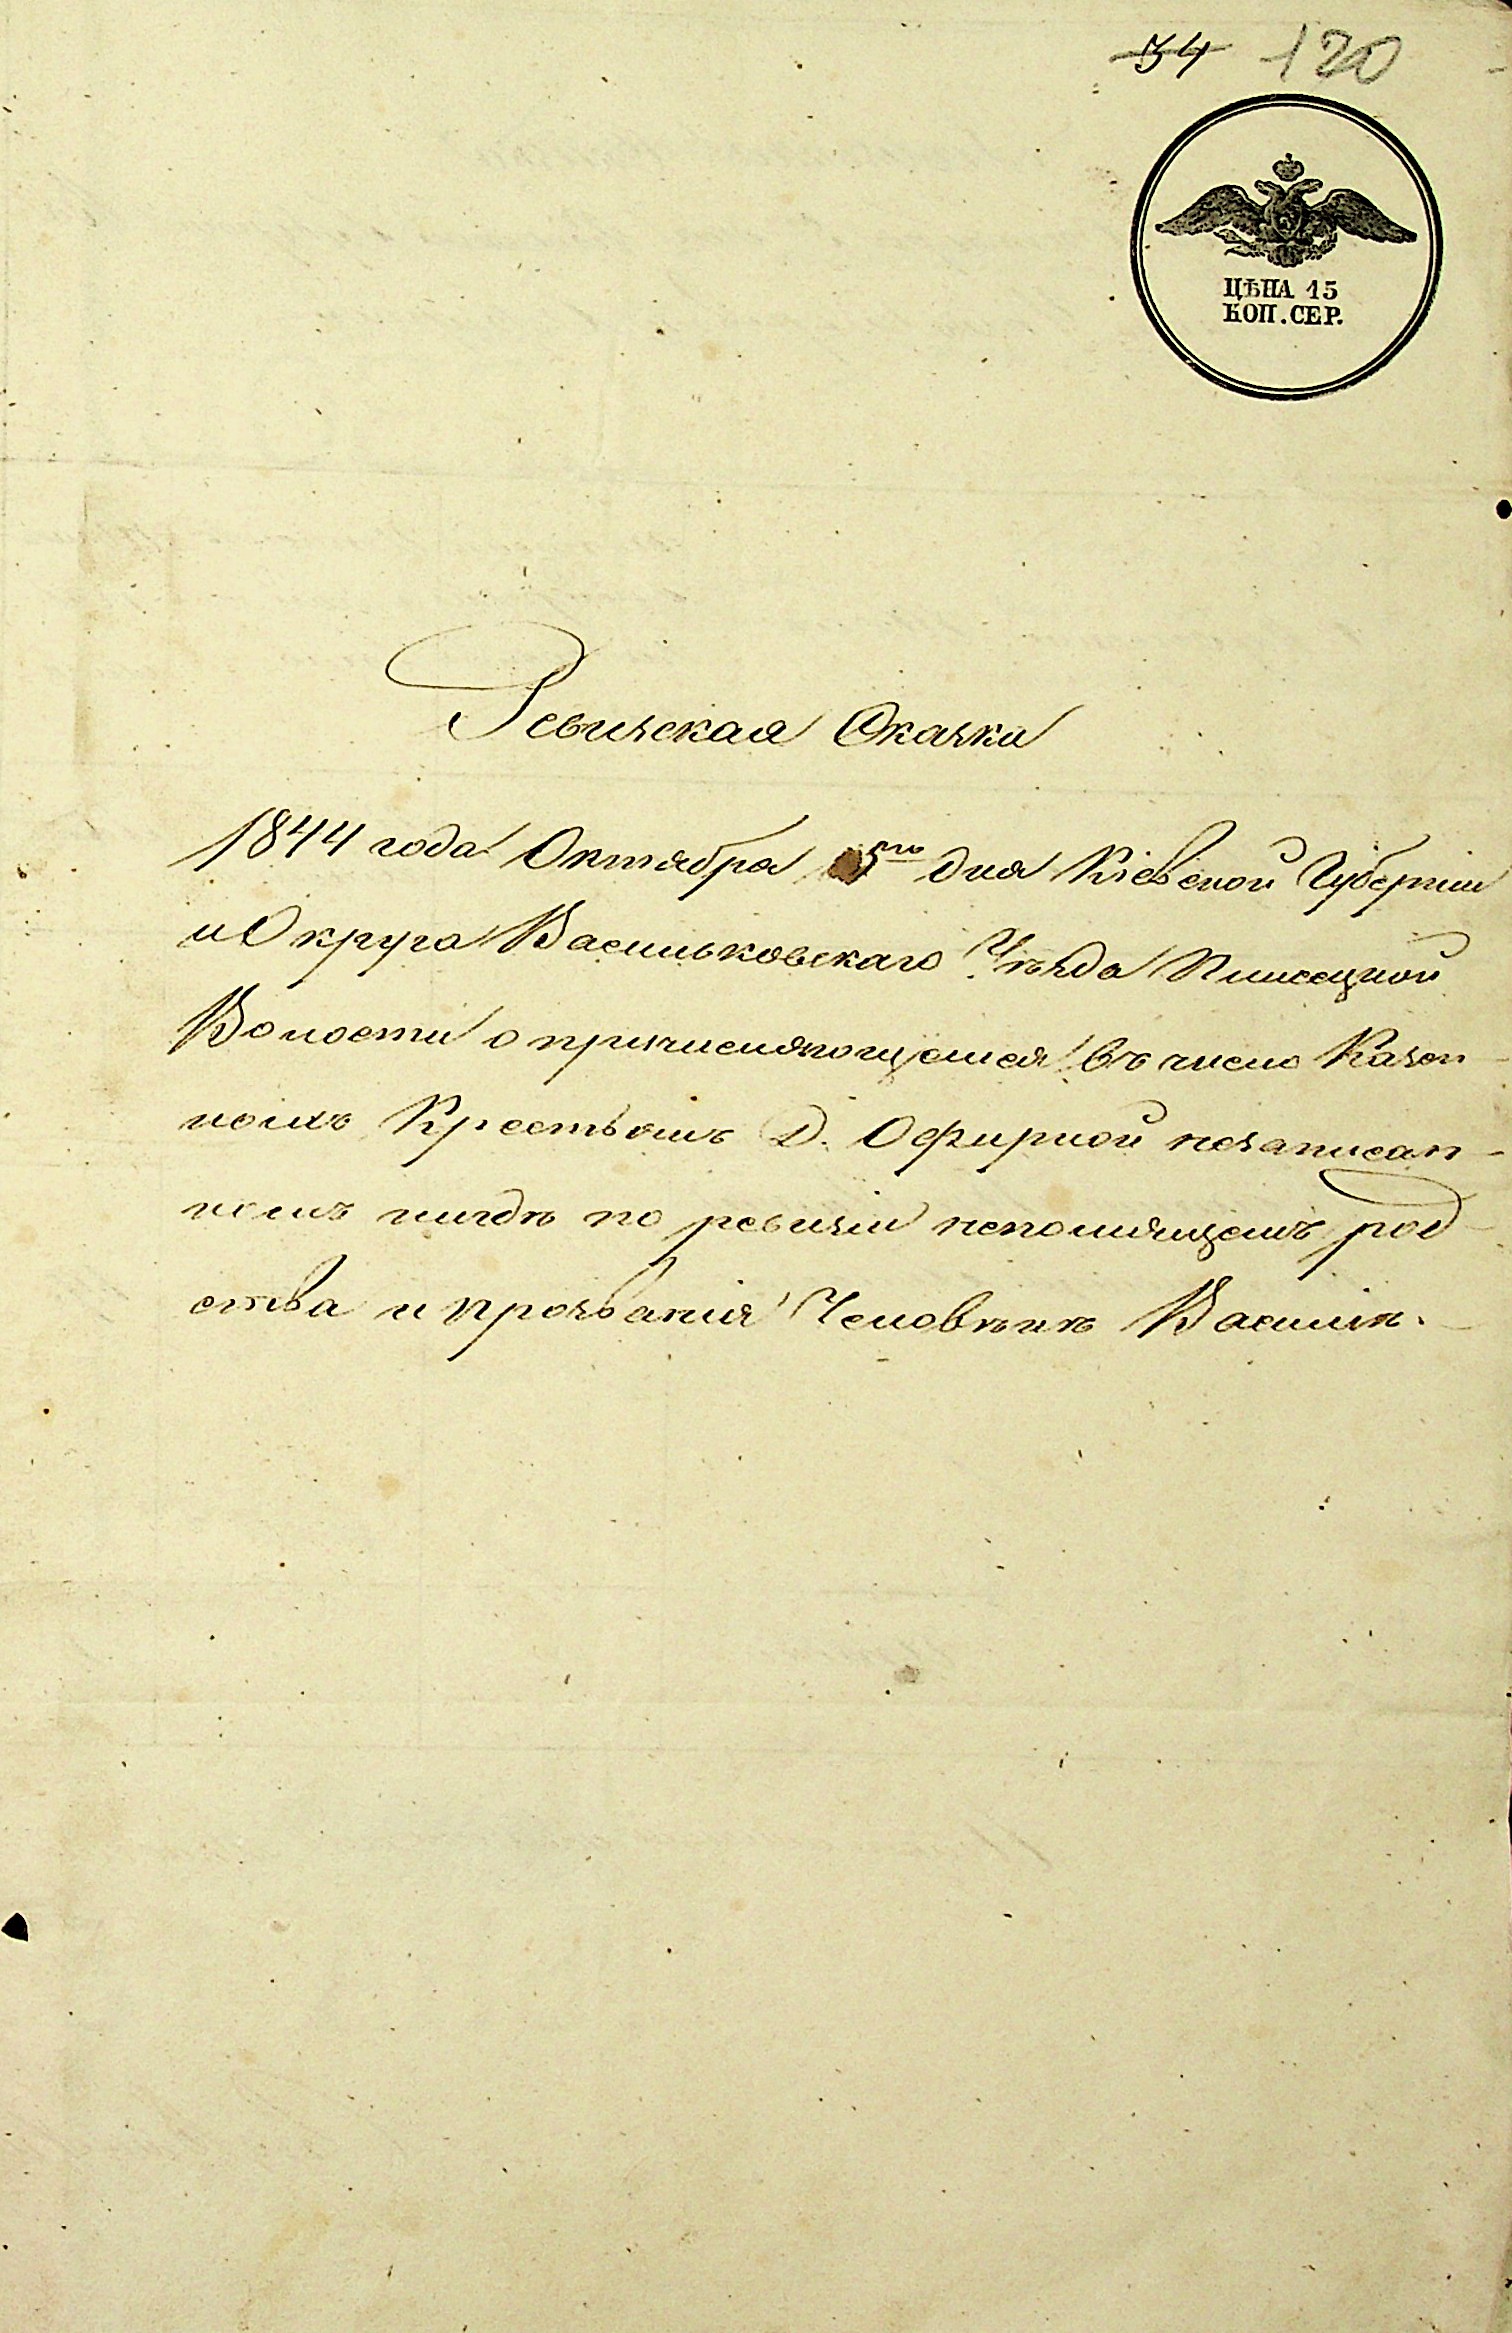 54 120
ЦѢНА 15
КОП. СЕР.
Ревизская Сказка
1844 года Октября 5го дня Кіевской Губерніи
и Округа Васильковскаго Уѣзда
Волости о причисляющемся въ число Казен-
номъ Крестьянъ Д. Офирной незаписан-
номъ нигдѣ по ревизіи непомнящемъ род-
ства и прозванія Человѣкѣ Василіѣ.